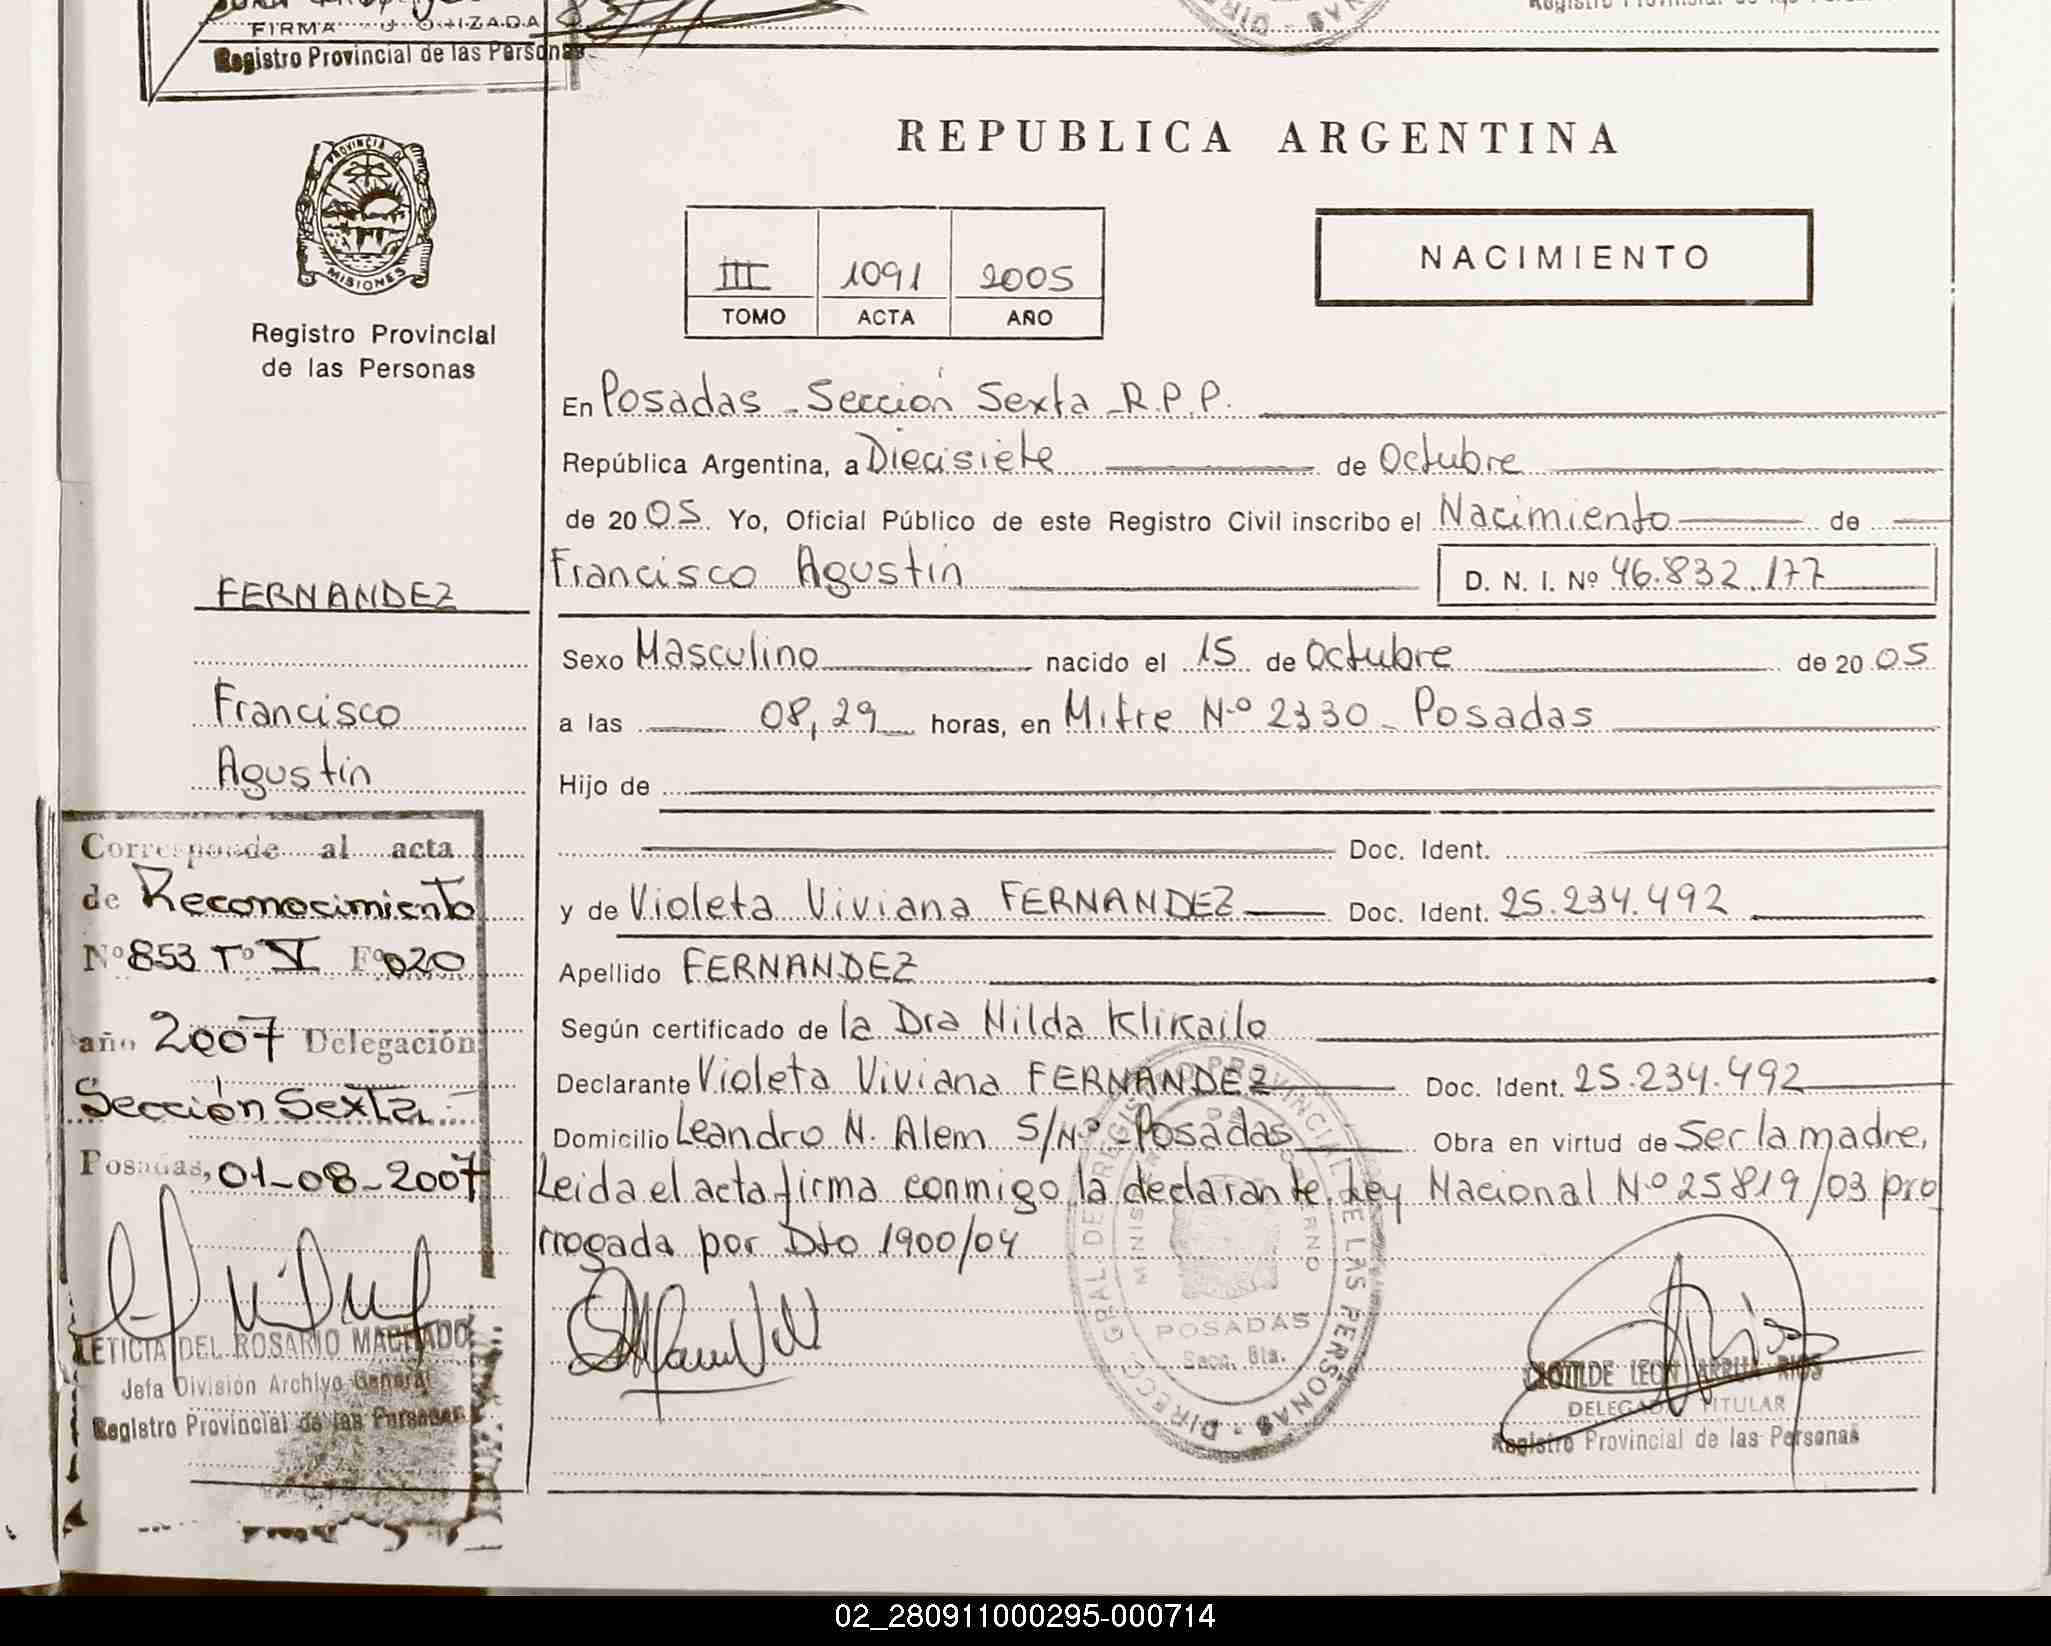 FIRMA
Registro Provincial de las Personas
PROVINCIA DE
MISIONES
Registro Provincial
de las Personas
REPUBLICA ARGENTINA
III 1091 2005
TOMO ACTA AÑO
NACIMIENTO
En Posadas - Sección Sexta - R.P.P.
República Argentina, a Diecisiete de Octubre
de 2005 Yo, Oficial Público de este Registro Civil inscribo el Nacimiento de
Francisco Agustin D. N. I. Nº 46.832.177
Sexo Masculino nacido el 15 de Octubre de 2005
a las 08,29 horas, en Mitre Nº 2330 - Posadas
Hijo de
Doc. Ident.
y de Violeta Viviana FERNANDEZ Doc. Ident. 25.234.492
Apellido FERNANDEZ
Según certificado de la Dra Nilda Klikailo
Declarante Violeta Viviana FERNANDEZ Doc. Ident. 25.234.492
Domicilio Leandro N. Alem S/Nº - Posadas Obra en virtud de Ser la madre,
Leida el acta firma conmigo la declarante. Ley Nacional Nº 25819/03 pro
rrogada por Dto 1900/04
FERNANDEZ
Francisco
Agustin
Corresponde al acta
de Reconocimiento
Nº 853 Tº V Fº 020
año 2007 Delegación
Sección Sexta
Posadas, 01-08-2007
LETICIA DEL ROSARIO MACHADO
Jefa División Archivo General
Registro Provincial de las Personas
DIRECC. GRAL. DE REGISTRO PROVINCIAL DE LAS PERSONAS
POSADAS
Secc. 6ta.
CLOTILDE LEON ARRUA RIOS
DELEGADO TITULAR
Registro Provincial de las Personas
02_280911000295-000714